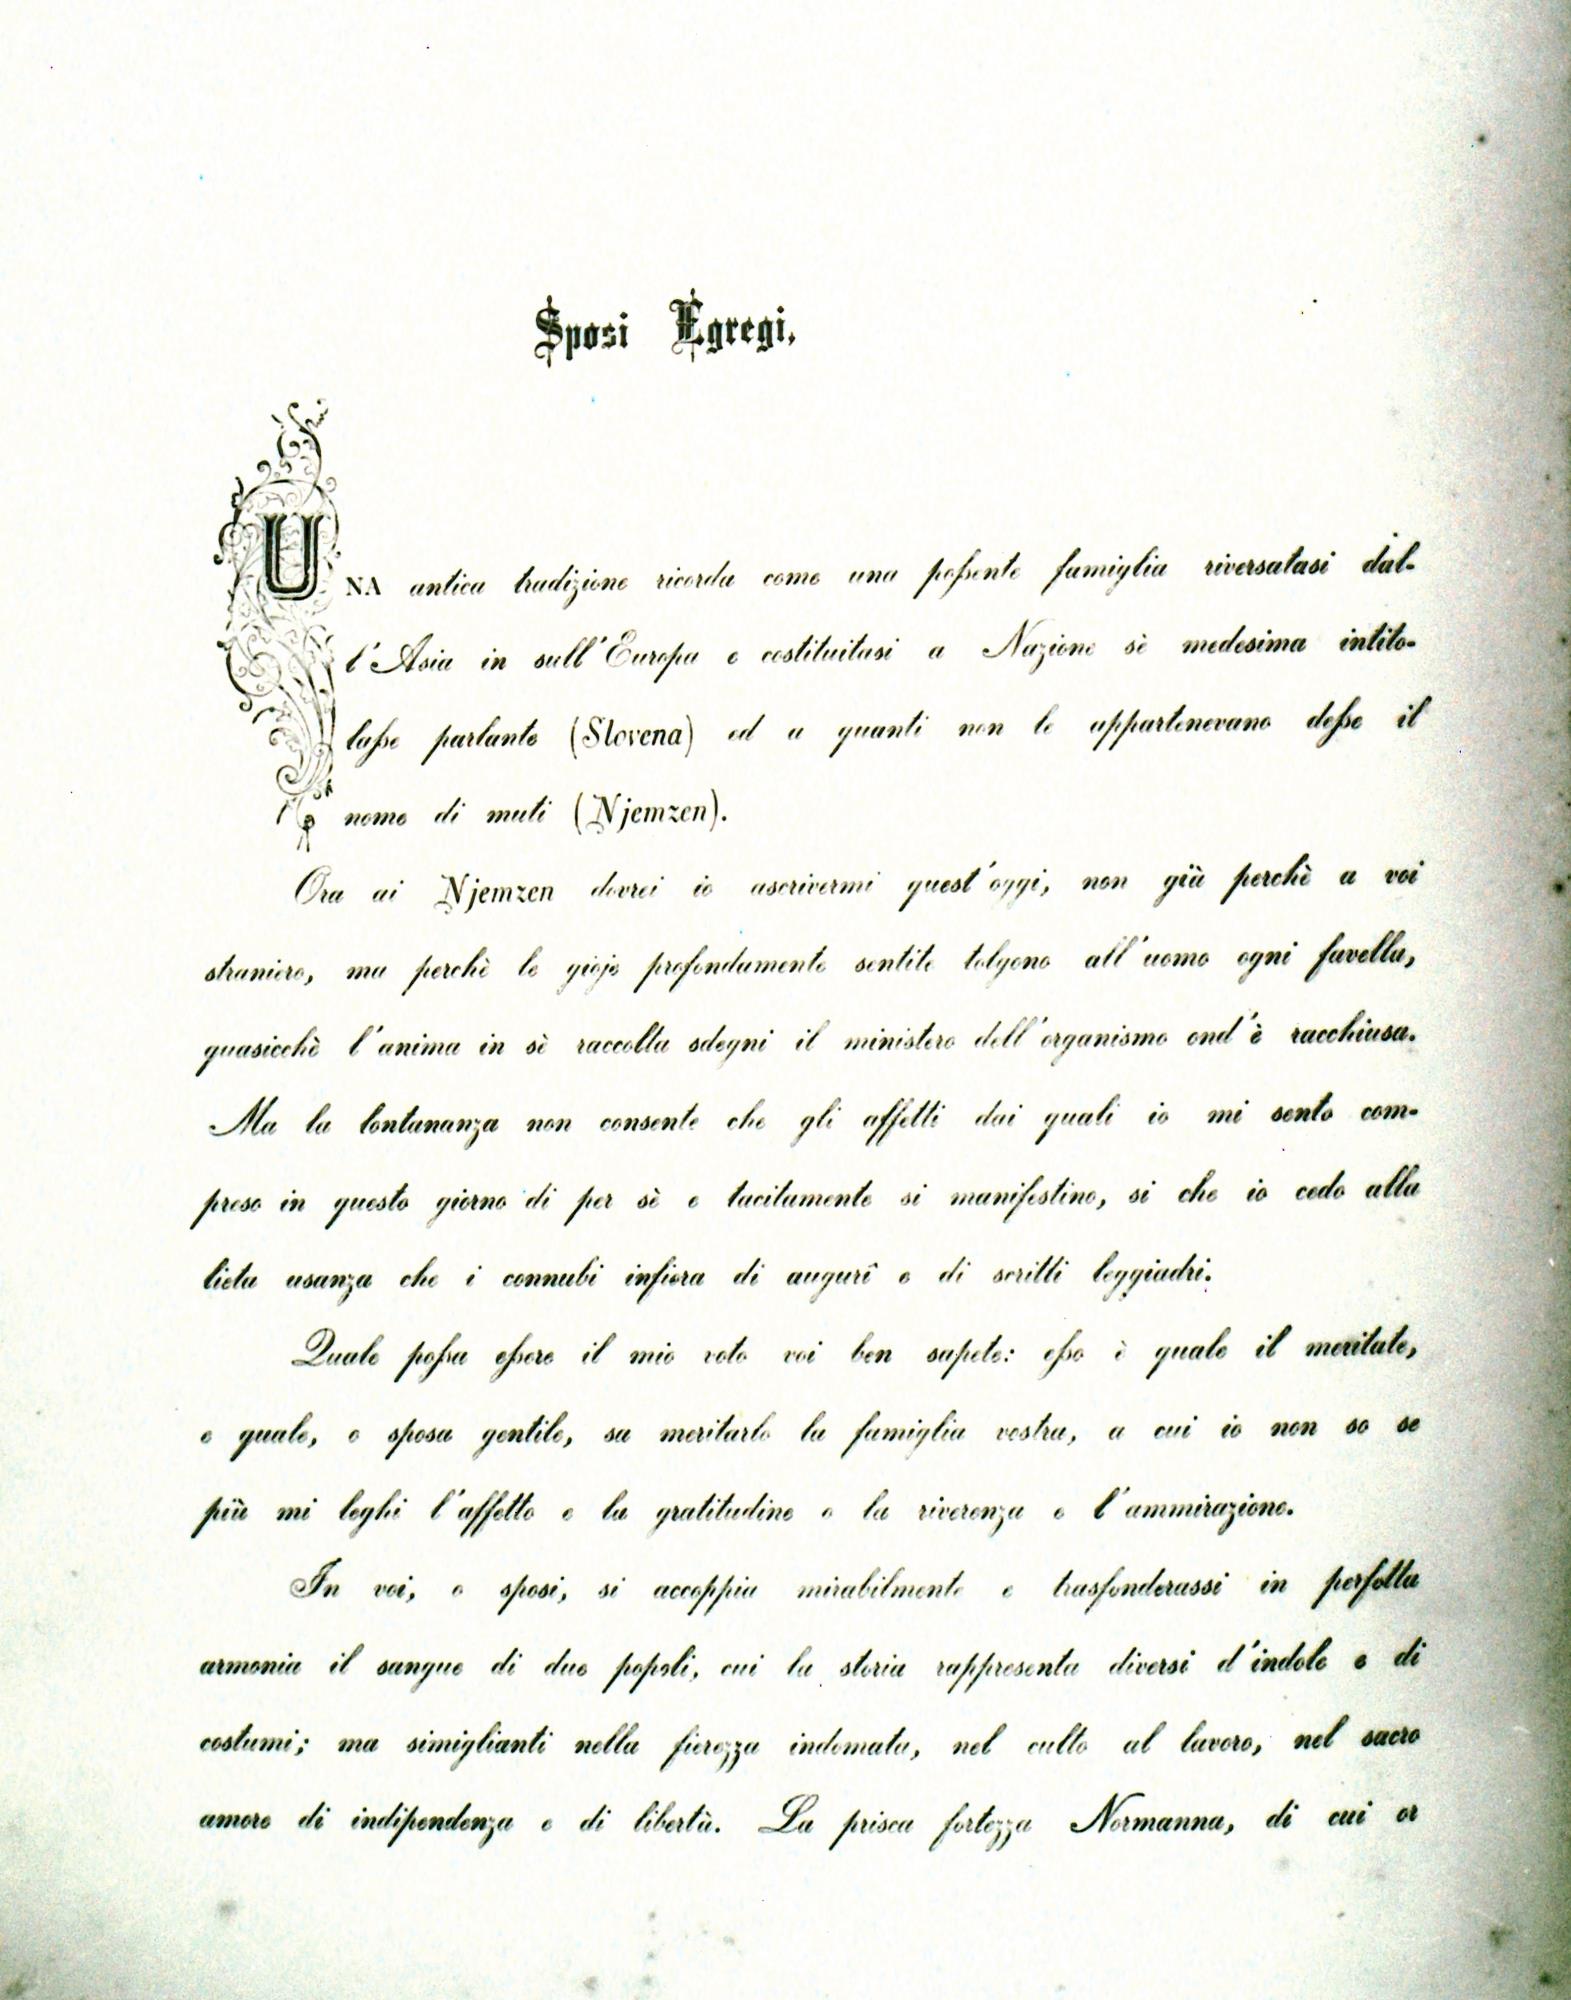 Sposi Egregi,
UNA antica tradizione ricorda come una possente famiglia riversatasi dal-
l'Asia in sull'Europa e costituitasi a Nazione sè medesima intito-
lasse parlante (Slovena) ed a quanti non le appartenevano desse il
nome di muti (Njemzen).
Ora ai Njemzen dovrei io ascrivermi quest'oggi, non già perchè a voi
straniero, ma perchè le gioje profondamente sentite tolgono all'uomo ogni favella,
quasicchè l'anima in sè raccolta sdegni il ministero dell'organismo ond'è racchiusa.
Ma la lontananza non consente che gli affetti dai quali io mi sento com-
preso in questo giorno di per sè e tacitamente si manifestino, si che io cedo alla
lieta usanza che i connubi infiora di augurî e di scritti leggiadri.
Quale possa essere il mio voto voi ben sapete: esso è quale il meritate,
e quale, o sposa gentile, sa meritarlo la famiglia vostra, a cui io non so se
più mi leghi l'affetto e la gratitudine o la riverenza e l'ammirazione.
In voi, o sposi, si accoppia mirabilmente e trasfonderassi in perfetta
armonia il sangue di due popoli, cui la storia rappresenta diversi d'indole e di
costumi; ma simiglianti nella fierezza indomata, nel culto al lavoro, nel sacro
amore di indipendenza e di libertà. La prisca fortezza Normanna, di cui or